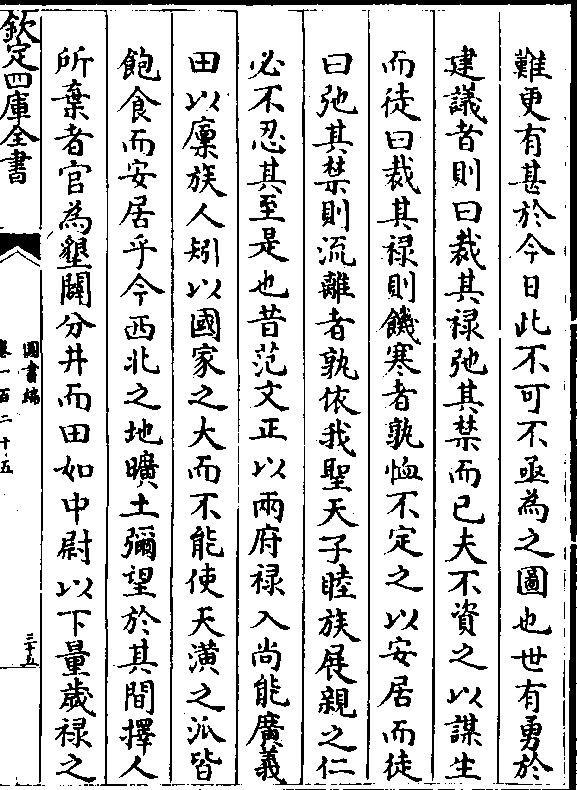 難更有甚於今日此不可不亟為之圖也世有勇於
建議者則曰裁其禄弛其禁而已夫不資之以謀生
而徒曰裁其禄則饑寒者孰恤不定之以安居而徒
曰弛其禁則流離者孰依我聖天子睦族展親之仁
必不忍其至是也昔范文正以兩府禄入尚能廣義
田以廩族人矧以國家之大而不能使天潢之派皆
飽食而安居乎今西北之地曠土彌望於其間擇人
所棄者官為墾闢分井而田如中尉以下量歲禄之
欽定四庫全書
圖書編
卷一百二十五
三十五